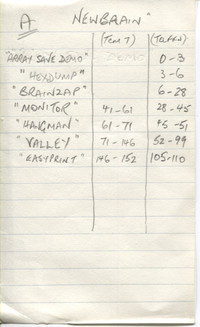 A NEWBRAIN"
(TCM 7)
"ARRAY SAVE DEMO" 0-3
"HEXDUMP" 3-6
"BRAINZAP" 6-28
"MONITOR" 41-61 28-45
"HANGMAN" 61-71 45-51
"VALLEY" 71-146 52-99
"EASYPRINT" 146-152 105-110